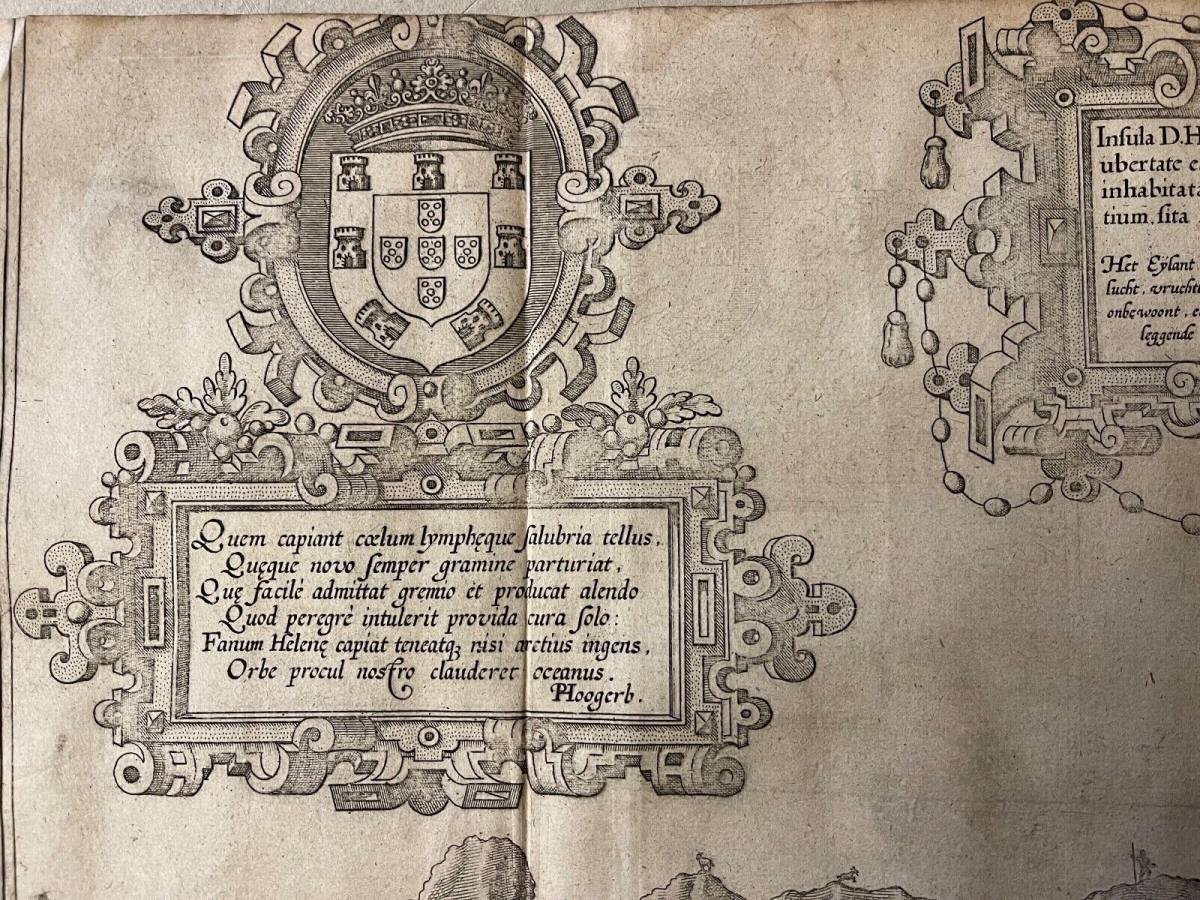 Quem capiant cœlum lymphęque salubria tellus,
Quęque novo semper gramine parturiat,
Que facilè admittat gremio et producat alendo
Quod peregrè intulerit provida cura solo:
Fanum Helenę capiat teneatqꝫ nisi arctius ingens,
Orbe procul nostro clauderet oceanus.
PHoogerb.
Insula D.H
ubertate e
inhabitata
tium, sita
Het Eÿlant
lucht, vrucht
onbewoont, e
leggende